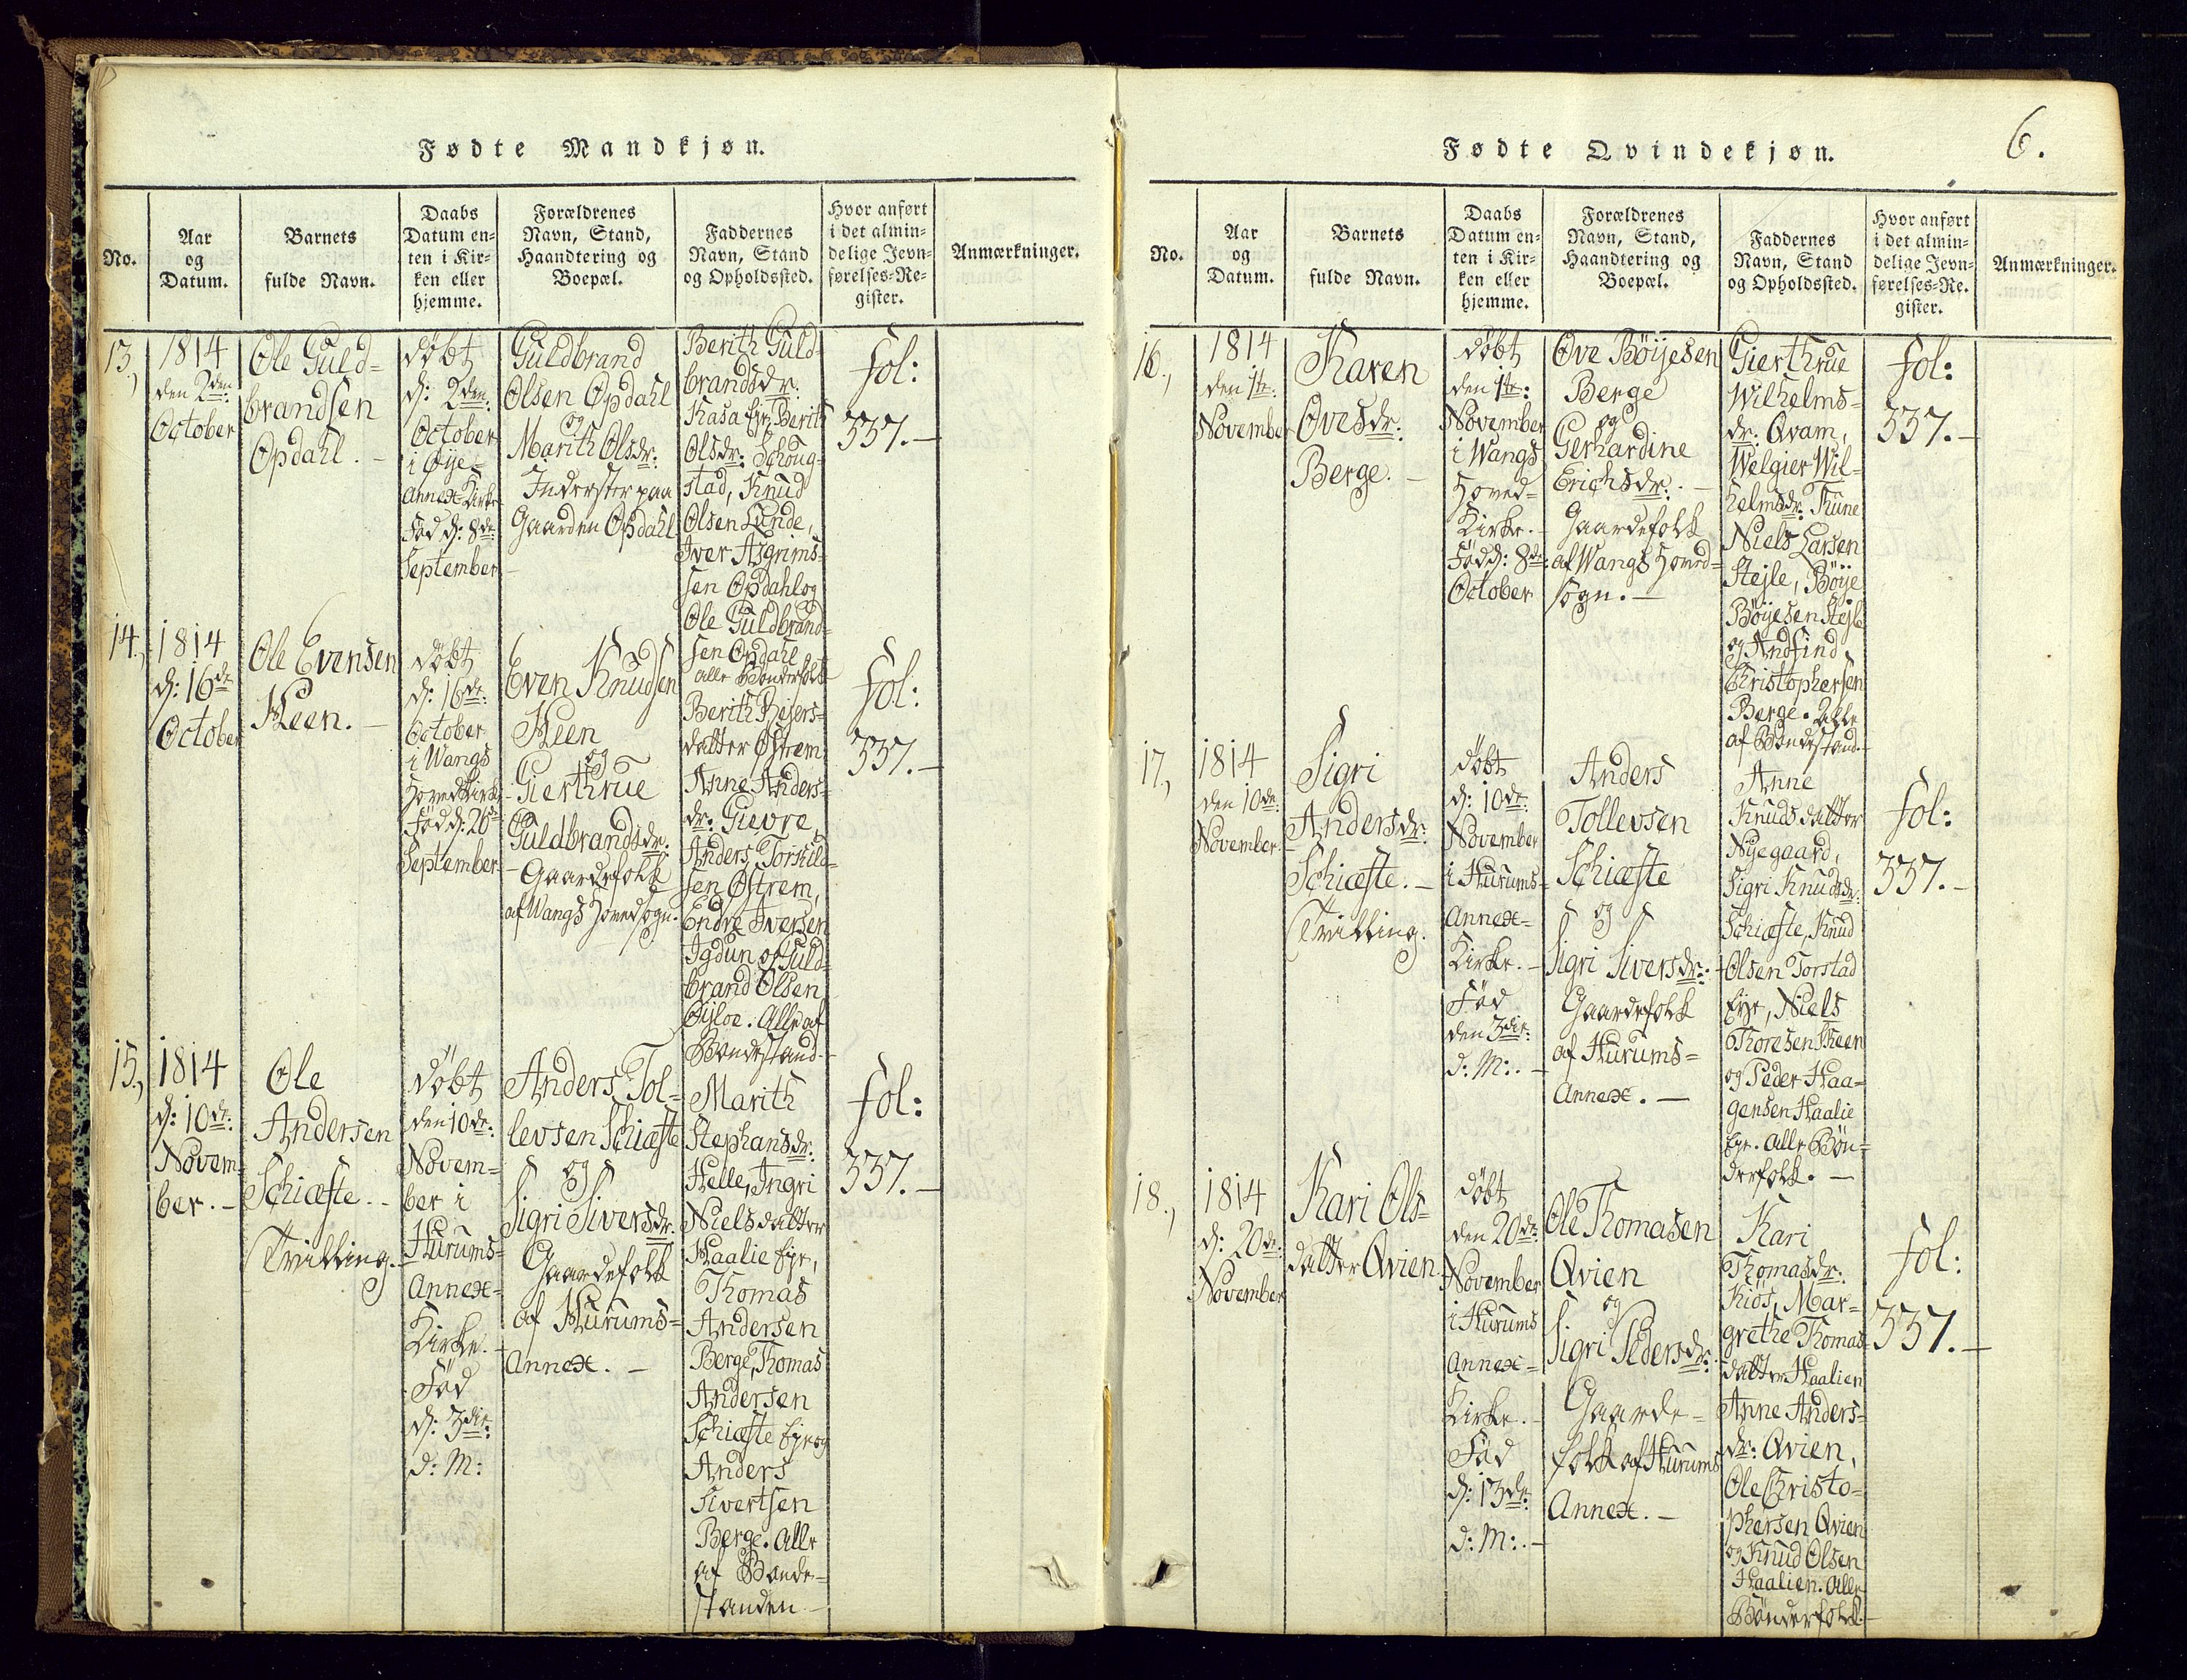 Fødte Mandkjøn.
No.
Aar
og
Datum.
Barnets
fulde Navn.
Daabs
Datum en-
ten i Kir-
ken eller
hjemme.
Forældrenes
Navn, Stand,
Haandtering og
Boepæl.
Faddernes
Navn, Stand
og Opholdssted.
Hvor anført
i det almin-
delige Jevn-
førelses-Re-
gister.
Anmærkninger.
13.,
1814
den 2den:
October
Ole Guld-
brandsen
Opdahl. -
döbt
d: 2den:
October
i Øye-
Annex-Kirke
Fød d: 8de:
September
Guldbrand
Olsen Opdahl
og
Marith Olsdr:
Inderster paa
Gaarden Opdahl
Berith Guld-
brandsdr.
Kasa Eje, Berith
Olsdr: Schoug-
stad, Knud
Olsen Lunde,
Iver Asgrims-
sen Opdahl og
Ole Guldbrand-
sen Opdahl
alle Bönderfolk
fol:
337.-
14.,
1814
d: 16de
October
Ole Evensen
Heen. -
döbt
d: 16de:
October
i Wangs
Hovedkirke
Fød d: 26de
September
Even Knudsen
Heen
og
Gierthrue
Guldbrandsdr:
Gaardefolk
af Wangs Hovedsogn.
Berith
datter Østrem
Anne Anders-
dr: Gievre,
Anders Torkild-
sen Østrem,
Endre Iversen
Igdun og Guld-
brand Olsen
Øyloe. Alle af
Bondestand.
fol:
337.-
15.,
1814
d: 10de:
Novem-
ber. -
Ole
Andersen
Schiæfte. -
(Tvilling.
döbt
den 10de:
Novem-
ber i
Hurums-
Annex-
Kirke. -
Fød
d: 3die:
d: M:
Anders Tol-
levsen Schiæfte
og
Sigri Siversdr:
Gaardefolk
af Hurums-
Annex. -
Marith
Stephansdr:
Helle, Ingri
Nielsdatter
Haalie Eje,
Thomas
Andersen
Berge, Thomas
Andersen
Schiæfte Eje og
Anders
Sivertsen
Berge. Alle
af Bonde-
standen. -
fol:
337. -
Fødte Qvindekjøn.
6.
No.
Aar
og
Datum.
Barnets
fulde Navn.
Daabs
Datum en-
ten i Kir-
ken eller
hjemme.
Forældrenes
Navn, Stand,
Haandtering og
Boepæl.
Faddernes
Navn, Stand
og Opholdssted.
Hvor anført
i det almin-
delige Jevn-
førelses-Re-
gister.
Anmærkninger.
16.,
1814
den 1ste:
November
Karen
Ovesdr:
Berge. -
döbt
den 1ste:
November
i Wangs
Hoved-
Kirke. -
Fød d: 8de:
October
Ove Böijesen
Berge
og
Gerhardine
Erichsdr: -
Gaardefolk
af Wangs Hoved-
sogn. -
Gierthrue
Wilhelms-
dr: Qvam,
Welgier Wil-
helmsdr: Tune
Niels Larsen
Stejle, Böije
Böijesen Stejle
og Andfind
Christophersen
Berge. Alle
af Bondestand. -
fol:
337. -
17.,
1814
den 10de:
November
Sigri
Andersdr:
Schiæfte. -
(Tvilling.
döbt
d: 10de:
November
i Hurums-
Annex-
Kirke. -
Fød
den 3die:
d: M: . -
Anders
Tollevsen
Schiæfte
og
Sigri Siversdr: -
Gaardefolk
af Hurums-
Annex. -
Anne
Knudsdatter
Nyegaard,
Sigri Knudsdr:
Schiæfte, Knud
Olsen Torstad
Eje, Niels
Thoresen Skeen
og Peder Haa-
gensen Haalie
Eje. Alle Bön-
derfolk. -
fol:
337. -
18.,
1814
d: 20de:
November
Kari Ols-
datter Qvien
döbt
den 20de:
November
i Hurums
Annex-
Kirke. -
Fød
d: 13de:
d: M: . -
Ole Thomasen
Qvien
og
Sigri Pedersdr:
Gaarde-
folk af Hurums
Annex. -
Kari
Thomasdr:
Kiös, Mar-
grethe Thomas-
datter Haalien
Anne Anders-
dr: Qvien,
Ole Christo-
phersen Qvien
og Knud Olsen
Haalien. Alle
Bönderfolk. -
fol:
337. -